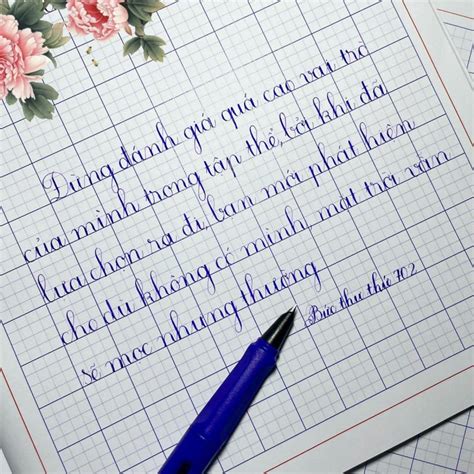 Đừng đánh giá quá cao vai trò
của mình trong tập thể, bởi khi đã
lựa chọn ra đi, bạn mới phát hiện
cho dù không có mình, mặt trời vẫn
sẽ mọc như thường
Bức thư thứ 702